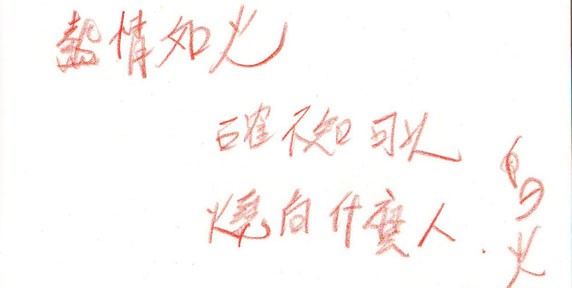 熱情如火
確不知可以
燒向什麼人.
火